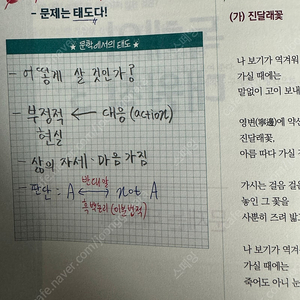 - 문제는 태도다!
★ 문학에서의 태도 ★
- 어떻게 살 것인가?
- 부정적 ← 대응 (action)
현실
- 삶의 자세·마음가짐
- 판단 : A ↔ not A
반대말
흑백논리 (이분법적)
(가) 진달래꽃
나 보기가 역겨워
가실 때에는
말없이 고이 보내
영변(寧邊)에 약산
진달래꽃,
아름 따다 가실
가시는 걸음 걸음
놓인 그 꽃을
사뿐히 즈려 밟고
나 보기가 역겨워
가실 때에는
죽어도 아니 눈